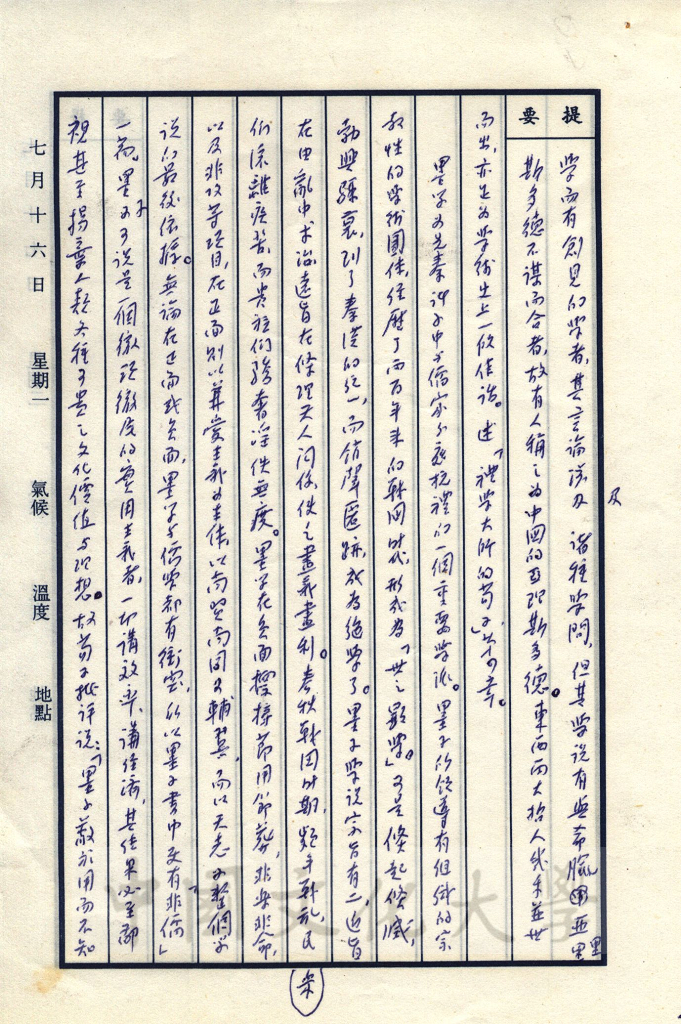 提要
學而有創見的學者,其言論涉及諸種學問,但其學說有與希臘亞里
斯多德不謀而合者,故有人稱之為中國的亞理斯多德。東西兩大哲人幾乎並世
而出,亦足為學術史上一段佳話。述「禮學大師的荀子」第十章。
墨學为先秦諸子中与儒家分庭抗禮的一個重要學派。墨子所領導有組織的宗
教性的學術團体,經歷了兩百年來的戰國时代,形成為「世之顯學」。可是條起條滅,
勃興驟衰,到了秦漢的統一,而銷聲匿跡,成為絕學了。墨子學說宗旨有二,近旨
在由亂中求治,遠旨在條理天人间,俾使之盡義盡利。春秋戰国时期,頻年战乱,民
们流離疾苦,而貴族们驕奢淫佚無度。墨學在負面標榜節用節葬,非樂非命,
以及非攻等項目,在正面則以兼愛主義为主体,以尚賢尚同为輔翼,而以天志为整個学
说的最後依據。無論在正面或負面,墨學与儒學都有衝突,所以墨子書中更有「非儒」
一篇。墨子可说是一個徹頭徹尾的實用主義者,一切講效率、講經濟,其结果必至鄙
視甚至揚棄人類各種可貴之文化價值与理想。故荀子批评说:「墨子蔽於用而不知
七月十六日 星期一 氣候 溫度 地點
中國文化大學